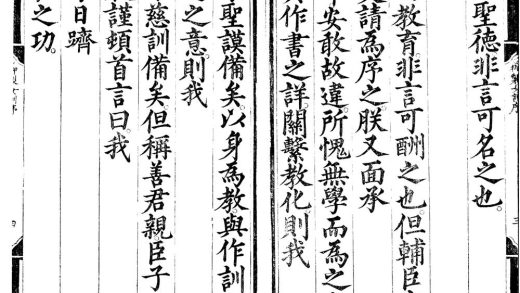 聖德非言可名之也。
教育非言可酬之也但輔臣
請為序之朕又面承
安敢故違。所愧無學而為之
作書之詳關繫教化則我
聖謨備矣。以身為教與作訓
之意則我
慈訓備矣但稱善君親臣子
謹頓首言曰我
日躋
之功。